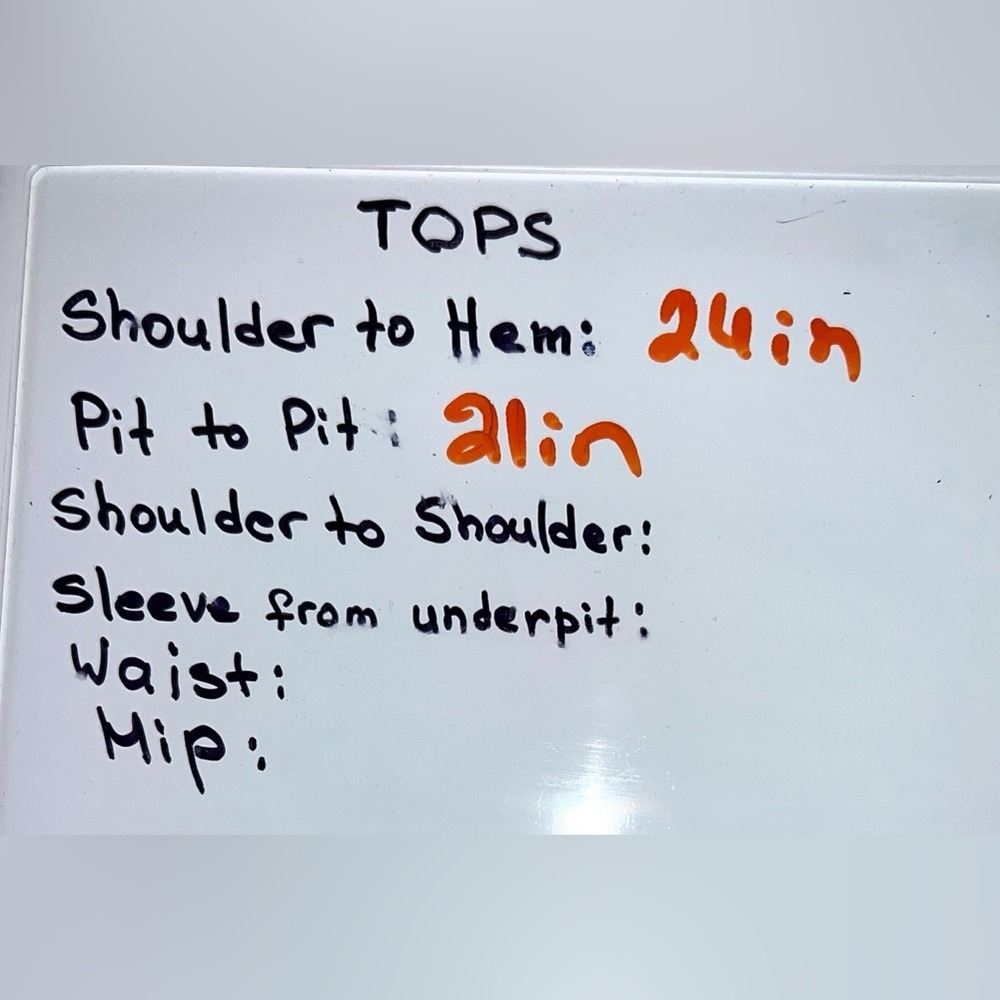 TOPS
Shoulder to Hem: 24in
Pit to Pit: 21in
Shoulder to Shoulder:
Sleeve from underpit:
Waist:
Hip: